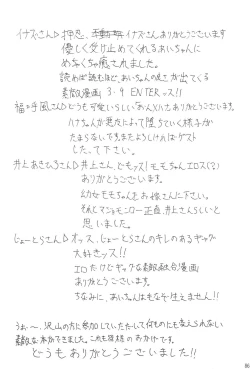 イナズーさん▷押忍、イナズーさんありがとうございます
優しく受け止めてくれるあいちゃんに
めちゃくちゃ癒されました。
読めば読むほど、あいちゃんの良さが出てくる
素敵漫画 39 ENTERッス!!
さん▷どうも可愛いらしい ありがとうございます。
ハナちゃんが悪友によって堕ちていく様子が
たまらないです。またよろしければゲスト
して下さい。
井上 さん▷井上さん、どもッス!モモちゃんエロス(?)
ありがとうございます。
幼女モモちゃんをお嫁さんに下さい。
正直、井上さんらしいと
思いました。
じょーとらさん▷オッス、じょーとらさんのキレのあるギャグ
大好きッス!!
エロだけどギャグな素敵 漫画
ありがとうございます。
ちなみに、あいちゃんは 生えません!!
うおぉ〜、沢山の方に参加していただいて何ものにも変えられない
素敵な本ができました。これも皆様のおかげです。
どうもありがとうございました!!